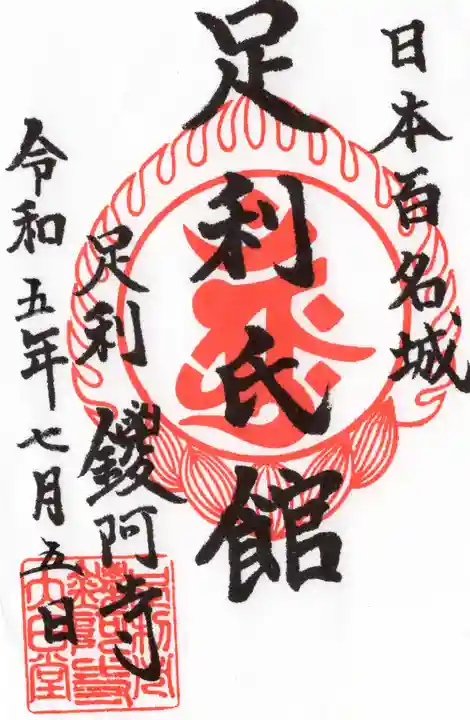 日本百名城
足利氏館
足利 鑁阿寺
令和五年七月五日